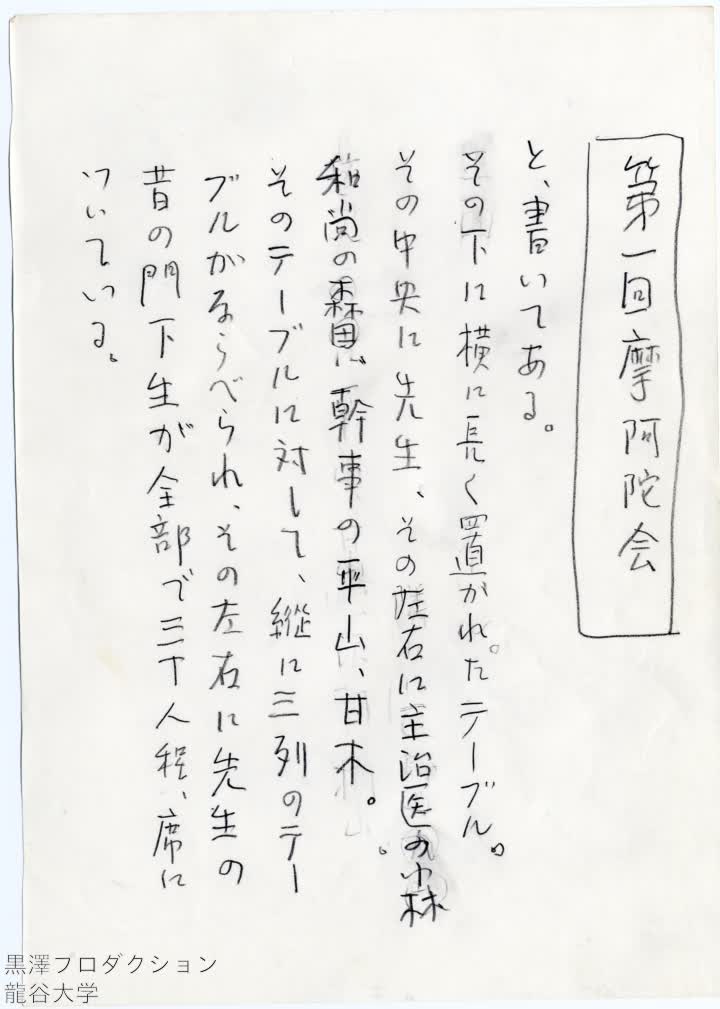 第一回摩阿陀会
と、書いてある。
その下に横に長く置かれたテーブル。
その中央に先生、その左右に主治医の小林
和尚の森田、幹事の平山、甘木。
そのテーブルに対して、縦に三列のテー
ブルがならべられ、その左右に先生の
昔の門下生が全部で三十人程、席に
ついている。
黒澤プロダクション
龍谷大学